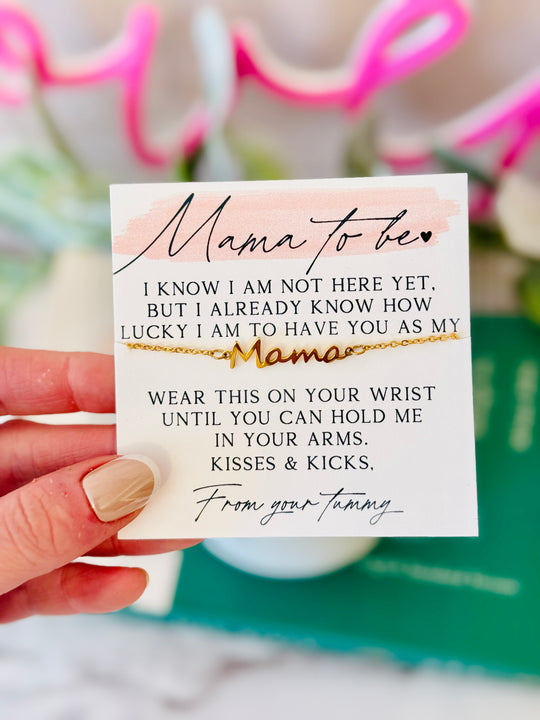 Mama to be
I KNOW I AM NOT HERE YET,
BUT I ALREADY KNOW HOW
LUCKY I AM TO HAVE YOU AS MY
Mama
WEAR THIS ON YOUR WRIST
UNTIL YOU CAN HOLD ME
IN YOUR ARMS.
KISSES & KICKS,
From your tummy